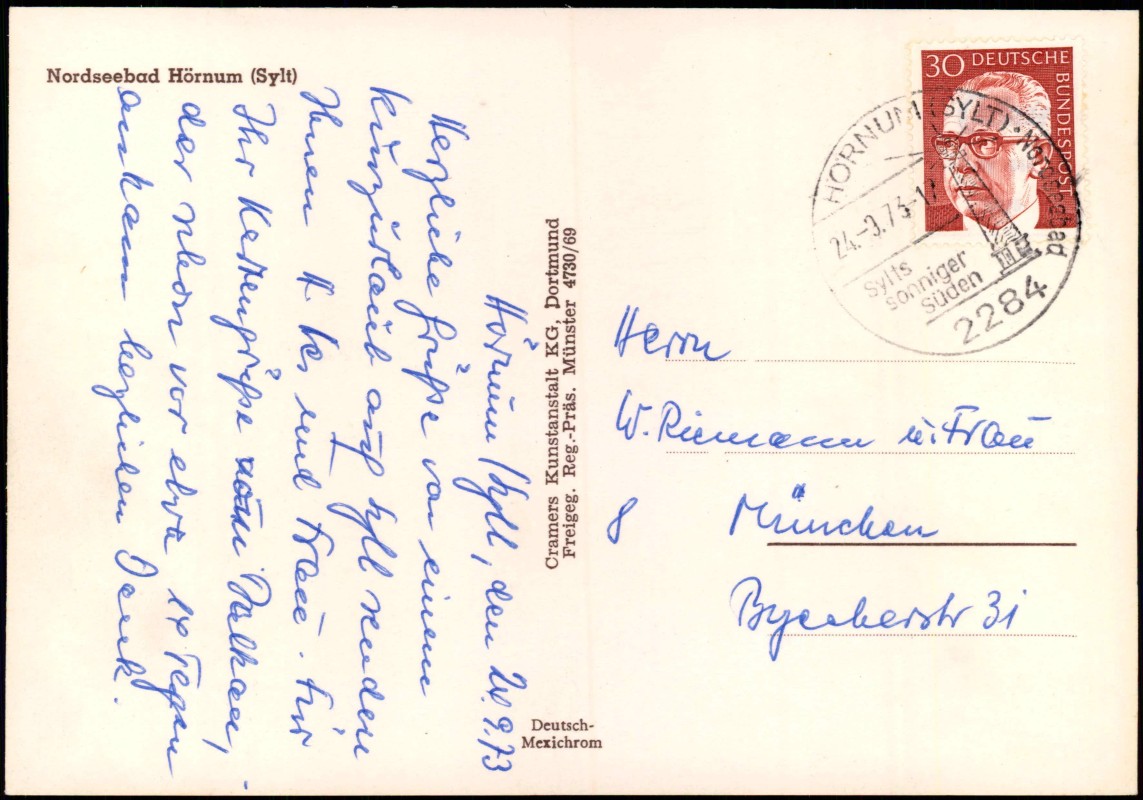 Nordseebad Hörnum (Sylt)
Hörnum/Sylt, den 9.73
Herzliche Grüße von einem
Kurzurlaub auf Sylt senden
Ihnen H. und Frau. Für
Ihr Kartengrüße vom Balkan,
der schon vor etwa 14 Tagen
ankam herzlichen Dank.
Cramers Kunstanstalt KG, Dortmund
Freigeg. Reg.-Präs. Münster 4730/69
Deutsch-
Mexichrom
30 DEUTSCHE BUNDESPOST
HÖRNUM (SYLT) · Nordseebad
24.-9.73-17
Sylts
sonniger
Süden
2284
Herrn
W. Riemann u. Frau
8 München
31